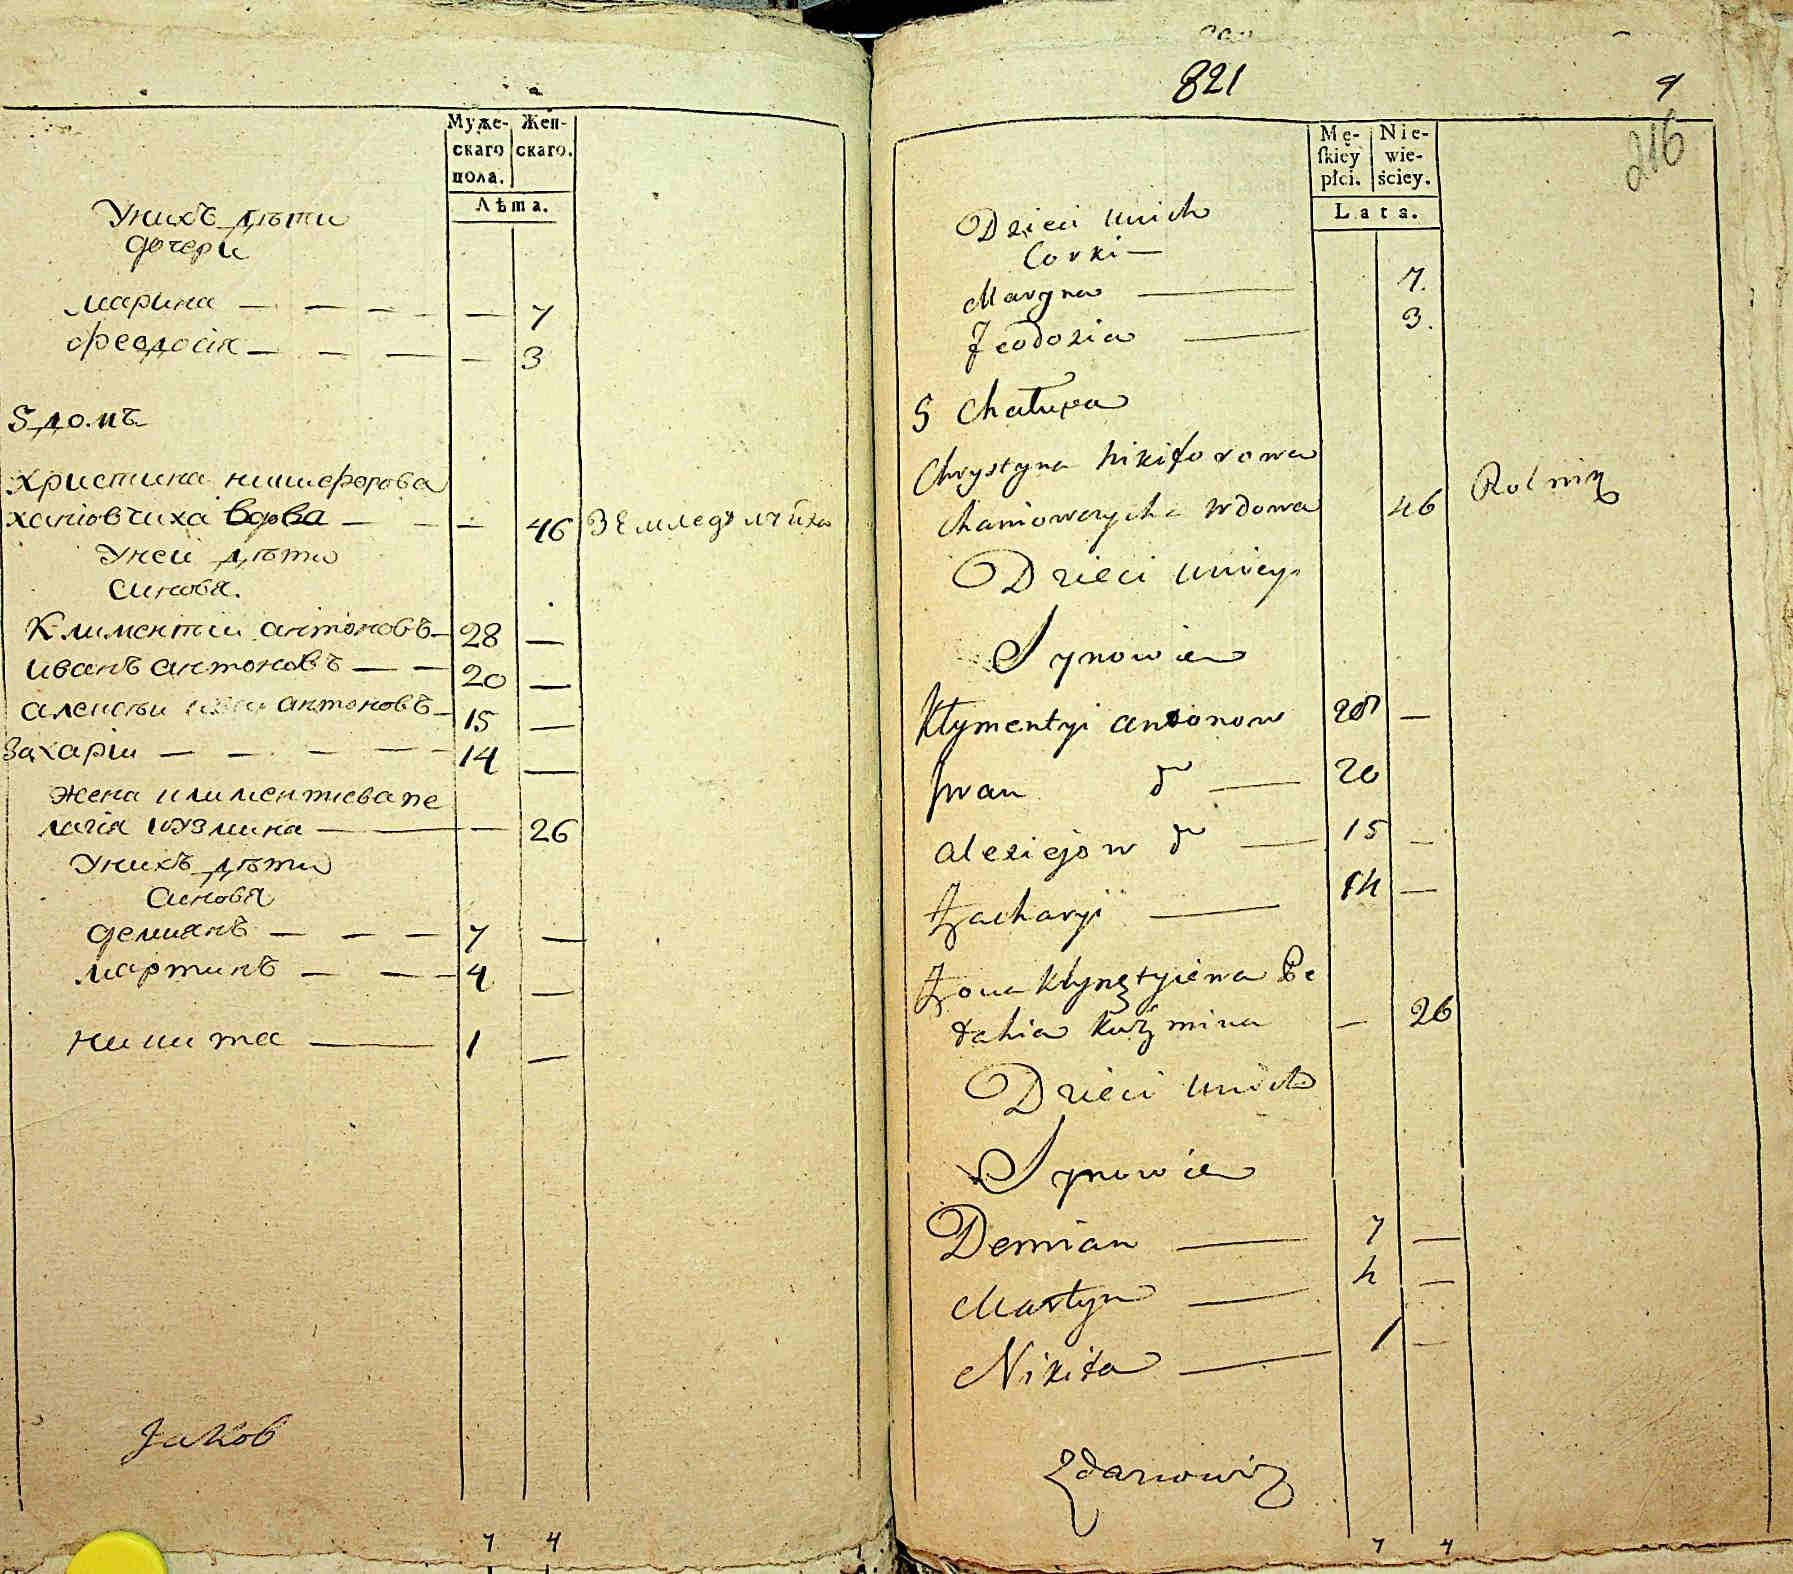 Муже-
скаго
пола.
Жен-
скаго.
Лѣта.
Унихъ дѣти
дочери
марина — — — — — 7
феодосія — — — — 3
5 домъ
христина никифорова
ханювчиха вдова — — — 46
Уней дѣти
синовя.
Климентіи антоновъ — 28 —
иванъ антоновъ — — 20 —
алексѣи антоновъ — 15 —
Захаріи — — — — — 14 —
жена климентиева пе
лагія кузмина — — 26
Унихъ дѣти
синовя
демиянъ — — — 7 —
мартинъ — — — 4 —
никита — 1 —
Jakob
7 4
821
9
216
Mę-
ſkiey
płci.
Nie-
wie-
ściey.
Lata.
Dzieci unich
Corki —
Maryna — 7.
Feodozia — 3.
5 Chałupa
Chrystyna Nikiforowa
Chaniowczycha wdowa 46 Rolnik
Dzieci unioy
Synowie
Kłymentyi antonow 28 —
Iwan do — 20
alexiejow do — 15 —
Zacharyi — 14 —
Żona Kłymętyiewa Pe
łahia Kuźmina — 26
Dzieci unich
Synowie
Demian — 7 —
Martyn — 4 —
Nikita — 1 —
Zdanowicz
7 4